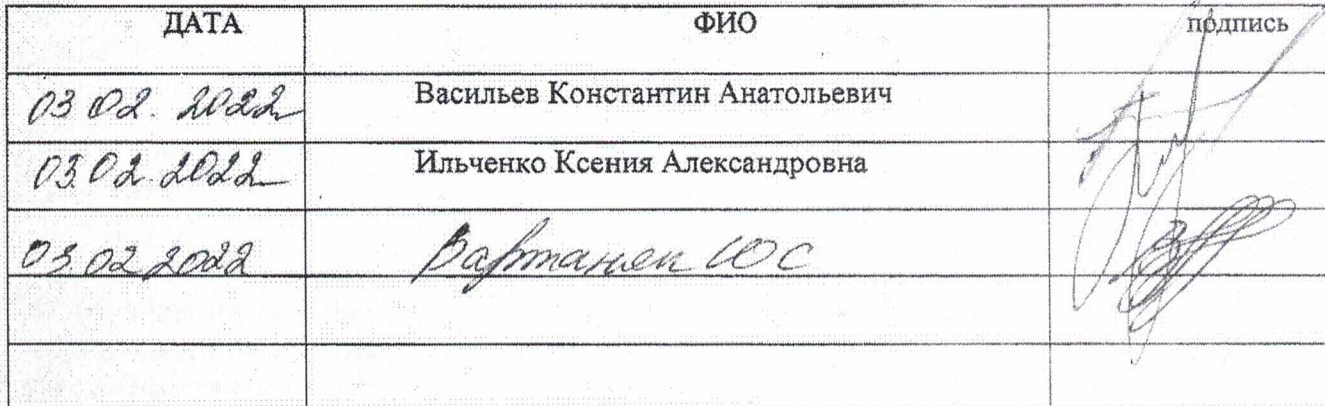 ДАТА ФИО подпись
03.02.2022 Васильев Константин Анатольевич
03.02.2022 Ильченко Ксения Александровна
03.02.2022 Вартанян ЮС